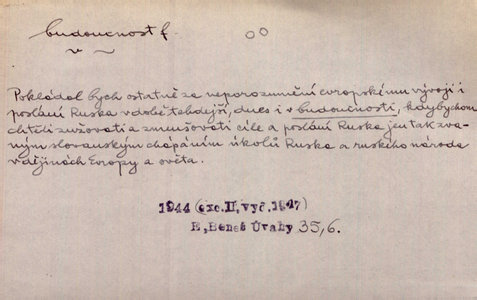 budoucnost f.
v ~
Pokládal bych ostatně za neporozumění evropskému vývoji i
poslání Ruska v době tehdejší, dnes i v budoucnosti, kdybychom
chtěli zužovati a zmenšovati cíle a poslání Ruska jen tak zva-
ným slovanským chápáním úkolů Ruska a ruského národa
v dějinách Evropy a světa.
1944 (exc. II, vyd. 1947)
E, Beneš Úvahy 35,6.